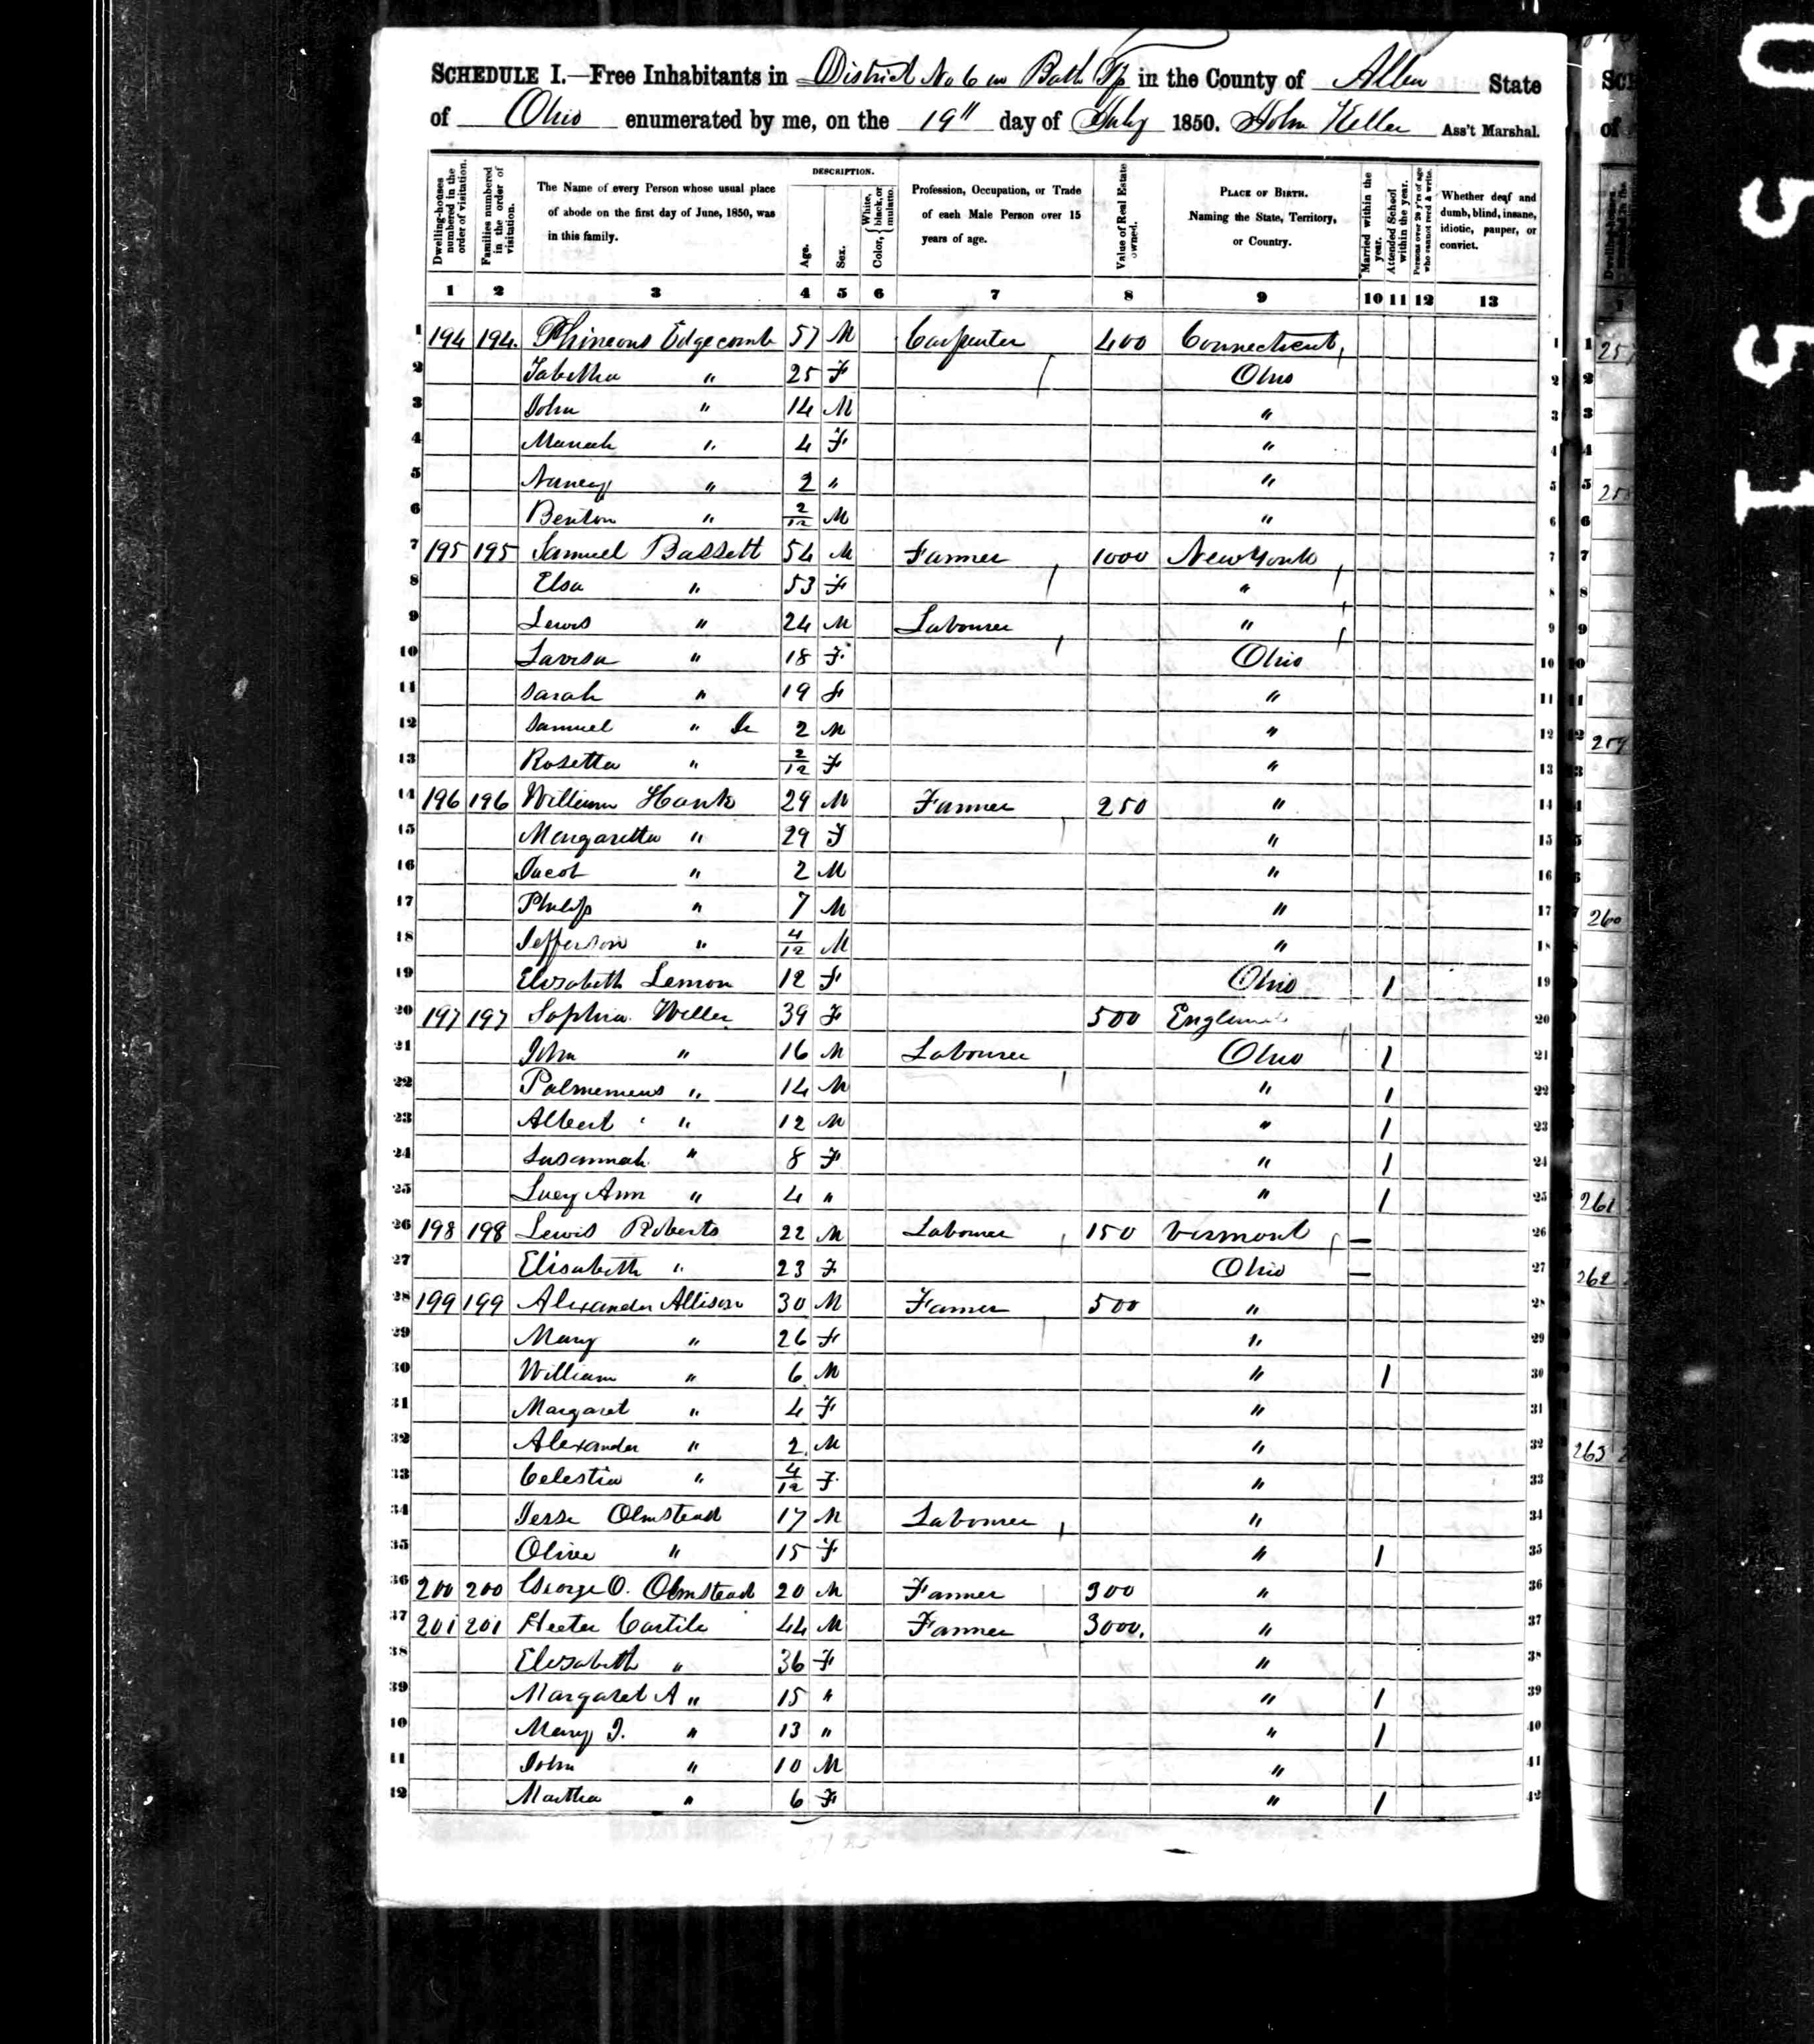 SCHEDULE I.—Free Inhabitants in District No 6 in Bath Tp in the County of Allen State
of Ohio enumerated by me, on the 19" day of July 1850. John Keller Ass't Marshal.
Dwelling-houses numbered in the order of visitation.
Families numbered in the order of visitation.
The Name of every Person whose usual place of abode on the first day of June, 1850, was in this family.
DESCRIPTION.
Age.
Sex.
Color, { White, black, or mulatto.
Profession, Occupation, or Trade of each Male Person over 15 years of age.
Value of Real Estate owned.
PLACE OF BIRTH. Naming the State, Territory, or Country.
Married within the year.
Attended School within the year.
Persons over 20 y'rs of age who cannot read & write.
Whether deaf and dumb, blind, insane, idiotic, pauper, or convict.
1 2 3 4 5 6 7 8 9 10 11 12 13
1 194 194. Phineons Edgecomb 57 M Carpenter 400 Connecticut, 1
2 Tabitha " 25 F Ohio 2
3 John " 14 M " 3
4 Manah " 4 F " 4
5 Nancy " 2 " " 5
6 Benton " 2/12 M " 6
7 195 195 Samuel Bassett 54 M Farmer 1000 New York 7
8 Elsa " 53 F " 8
9 Lewis " 24 M Labourer " 9
10 Lavisa " 18 F Ohio 10
11 Sarah " 19 F " 11
12 Samuel " Jr 2 M " 12
13 Rosetta " 2/12 F " 13
14 196 196 William Hank 29 M Farmer 250 " 14
15 Margaretta " 29 F " 15
16 Jacob " 2 M " 16
17 Philip " 7 M " 17
18 Jefferson " 4/12 M " 18
19 Elizabeth Lemon 12 F Ohio 1 19
20 197 197 Sophia Weller 39 F 500 England 20
21 John " 16 M Labourer Ohio 1 21
22 Palmemeus " 14 M " 1 22
23 Albert " 12 M " 1 23
24 Susannah " 8 F " 1 24
25 Lucy Ann " 4 " " 1 25
26 198 198 Lewis Roberts 22 M Labourer 150 Vermont — 26
27 Elisabeth " 23 F Ohio — 27
28 199 199 Alexander Allison 30 M Farmer 500 " 28
29 Mary " 26 F " 29
30 William " 6 M " 1 30
31 Margaret " 4 F " 31
32 Alexander " 2 M " 32
33 Celestia " 4/12 F " 33
34 Jesse Olmstead 17 M Labourer " 34
35 Olive " 15 F " 1 35
36 200 200 George O. Olmstead 20 M Farmer 300 " 36
37 201 201 Hector Cartile 44 M Farmer 3000. " 37
38 Elizabeth " 36 F " 38
39 Margaret A " 15 " " 1 39
40 Mary J. " 13 " " 1 40
41 John " 10 M " 41
42 Martha " 6 F " 1 42